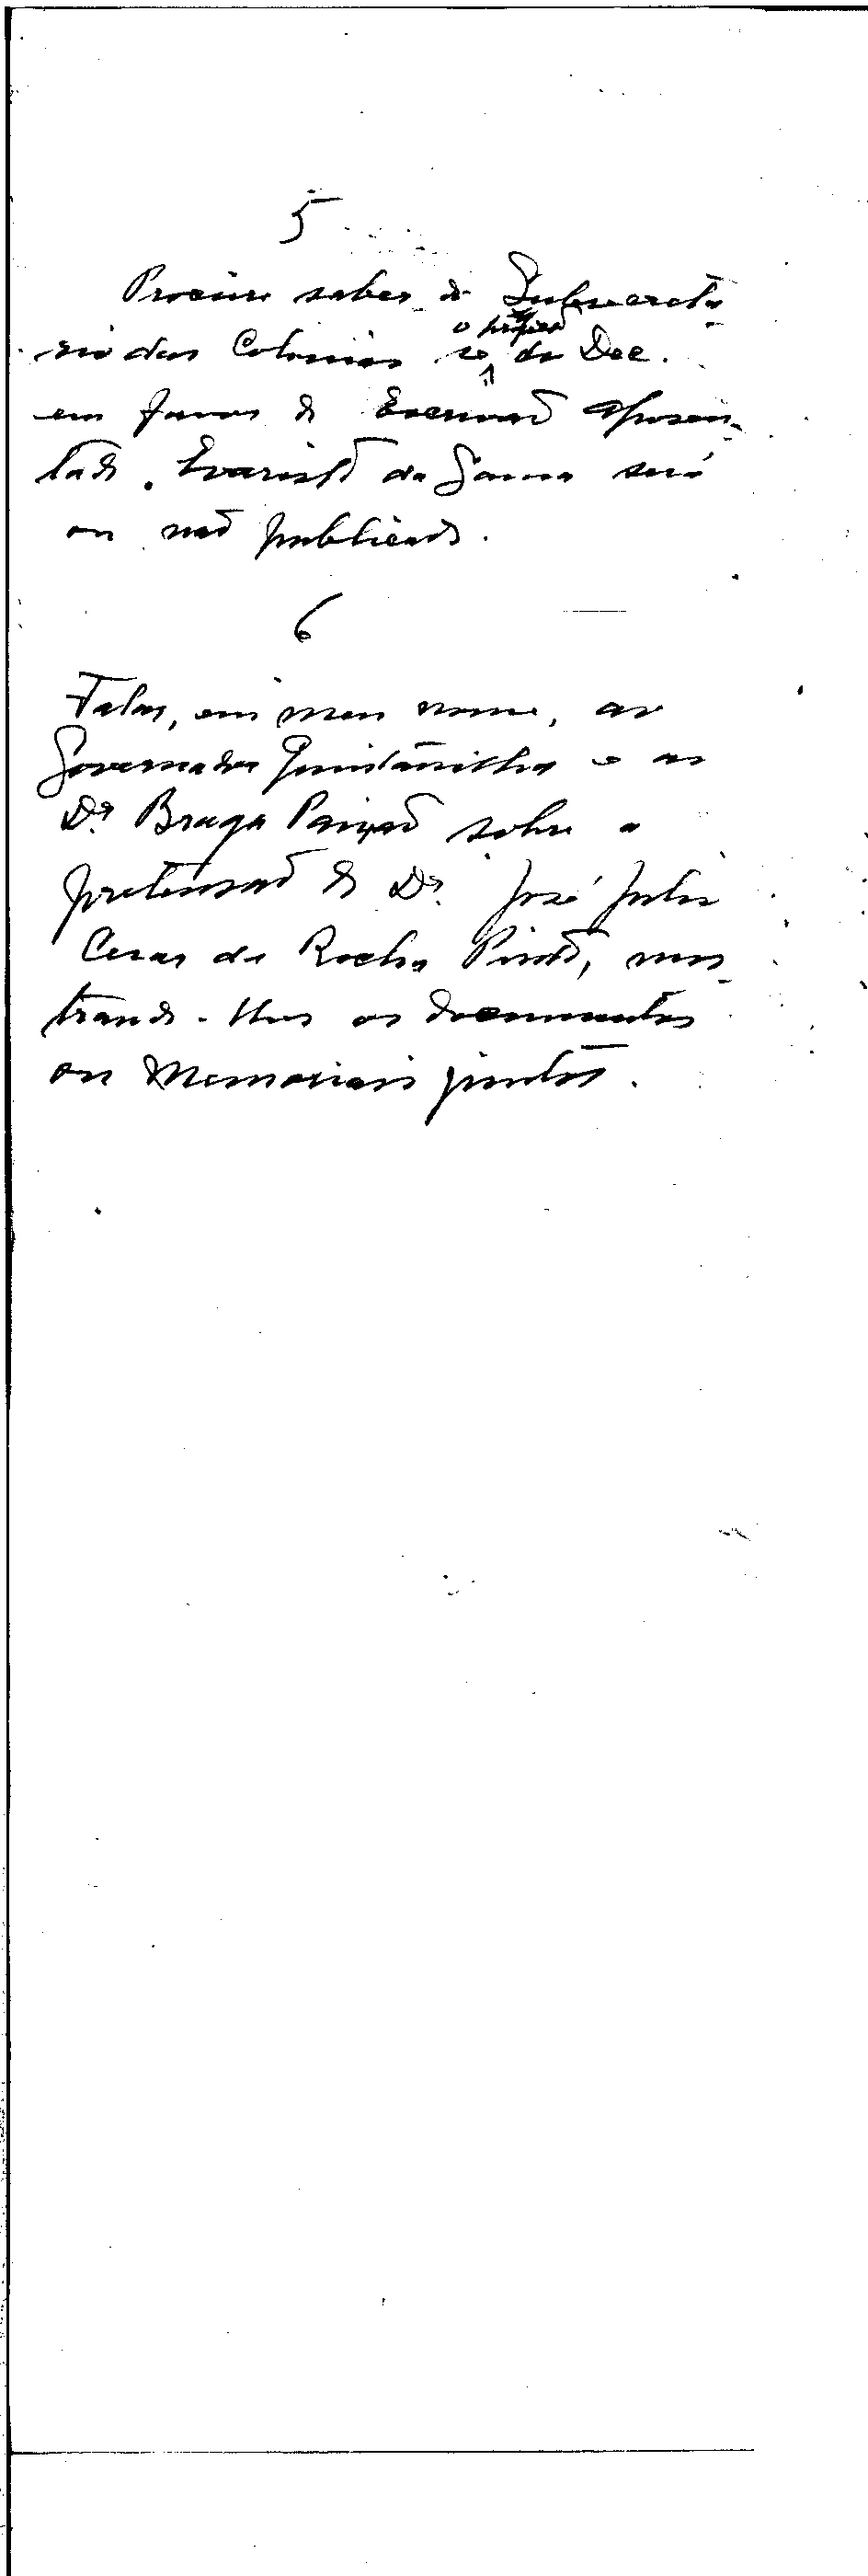 5
Procure saber do Subsecretá-
rio das Colonias se o projecto de Dec.
em favor do Escrivão aposen-
tado. Evaristo da Gama será
ou não publicado.
6
Falar, em meu nome, ao
Governador Quintanilha e ao
Dr. Braga Paixão sobre a
pretensão do Dr. José Julio
Cesar da Rocha Pinto, mos-
trando-lhes os documentos
ou Memoriais juntos.